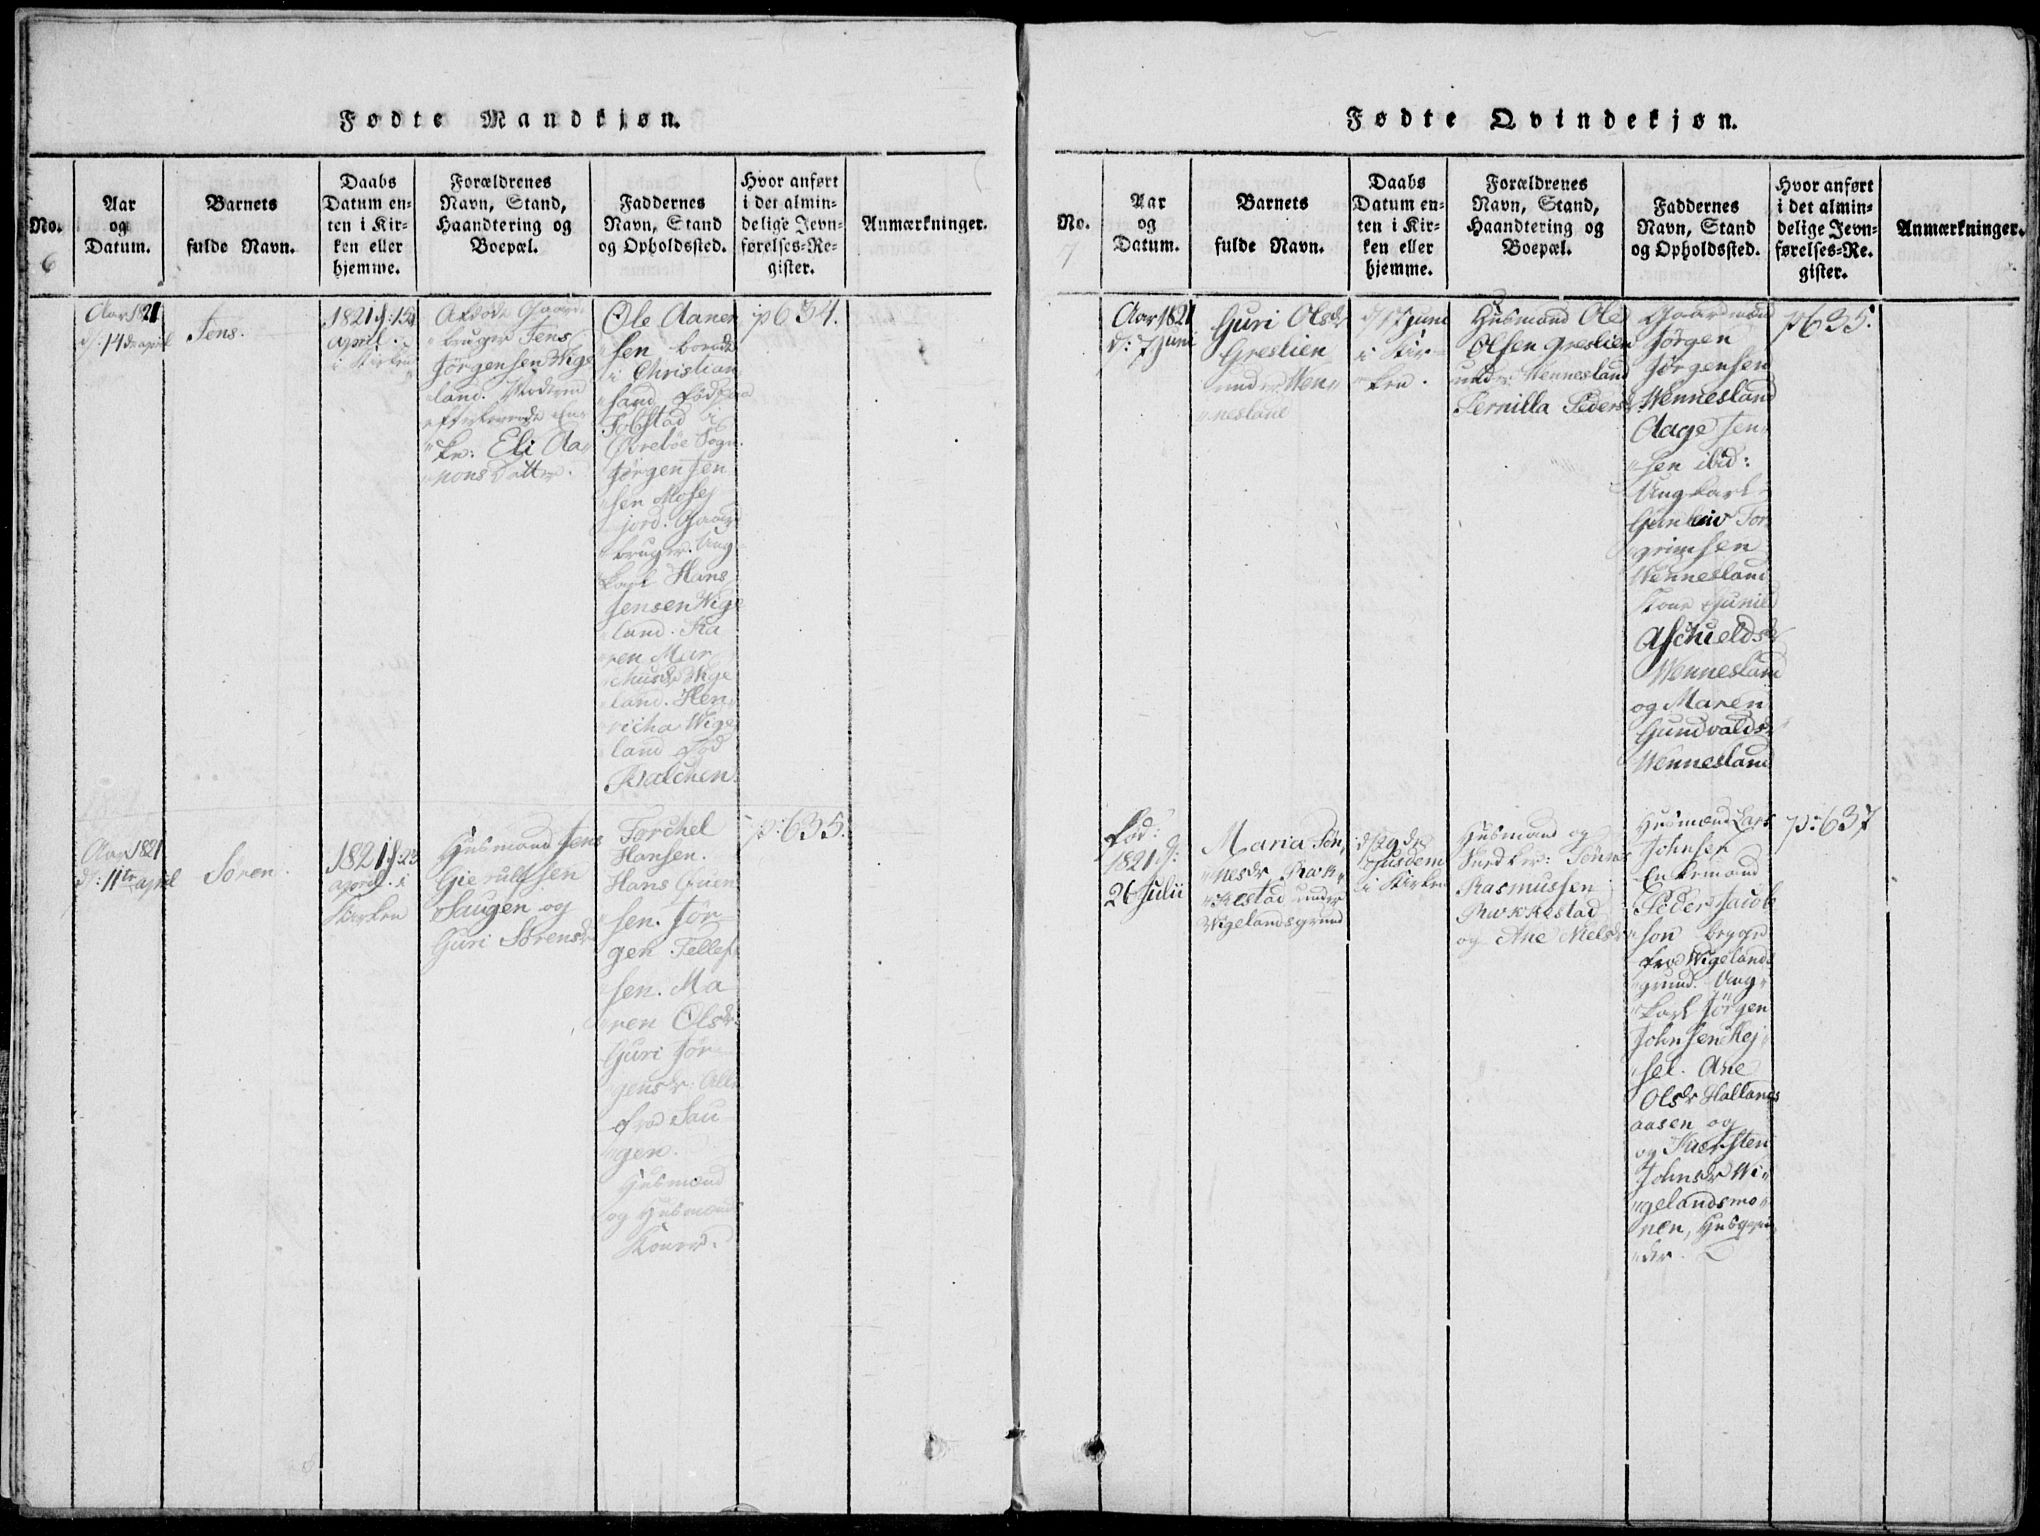 Fødte Mandkjøn.
No.
6
Aar
og
Datum.
Barnets
fulde Navn.
Daabs
Datum en-
ten i Kir-
ken eller
hjemme.
Forældrenes
Navn, Stand,
Haandtering og
Boepæl.
Faddernes
Navn, Stand
og Opholdssted.
Hvor anført
i det almin-
delige Jevn-
førelses-Re-
gister.
Anmærkninger.
Aar 1821
d: 14de april
Jens.
1821 d:
April.
i Kirken
Afdøde Gaard-
bruger Jens
Jørgensen Wige
land. Moderen
efterlevende En-
ke: Eli Aa-
nonsDatter.
Ole Aanen
sen boende
i Christian
sand, fød paa
i
Øvrebøe Sogn.
Jørgen Jen
sen Mosej
jord. Gaard-
bruger. Ung-
karl Hans
Jensen Wige
land. Ka
ren Mar
Wige
land. Hen
richa Wige
land fød
Balchen.
p 634.
Aar 1821
d: 11te april
Søren.
1821 d:
april. i
Kirken
Husmand Jens
Gierulfsen
Saugen og
Guri Sørensdr
Torchel
Hansen.
Hans
sen. Jør
gen Tellef
sen. Ma
ren Olsdr.
Guri Jør
gensdr. Alle
fra Sau
gen.
Husmænd
og Husmænds
Koner.
p: 635.
Fødte Qvindekjøn.
No.
7
Aar
og
Datum.
Barnets
fulde Navn.
Daabs
Datum en-
ten i Kir-
ken eller
hjemme.
Forældrenes
Navn, Stand,
Haandtering og
Boepæl.
Faddernes
Navn, Stand
og Opholdssted.
Hvor anført
i det almin-
delige Jevn-
førelses-Re-
gister.
Anmærkninger.
Aar 1821
d: 7 Juni
Guri Olsdr
Grestien
under Wen-
nesland
d/ 17 juni
i Kir-
ken.
Husmand Ole
Olsen Grestien
under Wennesland
Pernilla Pedersdr
Gaardmand
Jørgen
Jørgensen
Wennesland
Aage Jen
sen ibid:
Ungkarl
Gunleiv Tor
grimsen
Wennesland
Kone Gunild
Aschieldsdr
Wennesland
og Maren
Gundvaldsdr
Wennesland
p 635.
Fød:
1821 d:
26 Julii
Maria Tøn-
nesdr Rok
kestad under
Wigelandsgrund
d/ 29de
ejusdem
i Kirken
Husmand og
Tønnes
Rasmussen
Rokkestad
og Ane Nielsdr
Husmand Lars
Johnsen
Enkemand
Peder Jacob
son
fra Wigelands
grund. Ung-
karl Jørgen
Johnsen Hej
sel. Ane
Olsdr Hallands
aasen og
og Kiersten
Johnsdr Wi-
gelandsmo-
nen,
p: 637